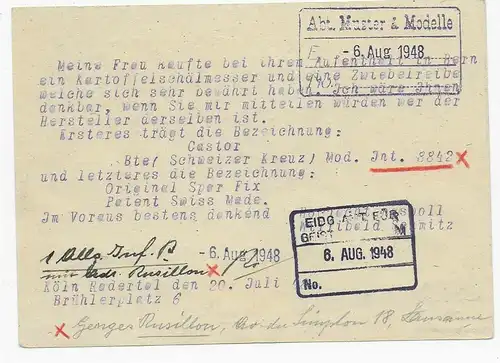 Abt. Muster & Modelle
-6. Aug 1948
Meine Frau kaufte bei ihrem Aufenthalt in Bern
ein Kartoffelschälmesser und eine Zwiebelreibe
welche sich sehr bewährt haben. Ich wäre Ihnen
dankbar, wenn Sie mir mitteilen würden wer der
Hersteller derselben ist.
Ersteres trägt die Bezeichnung:
Castor
Btef Schweizer Kreuz/ Mod. Int. 8842 x
und letzteres die Bezeichnung:
Original Spar Fix
Patent Swiss Made.
Im Voraus bestens dankend
EIDG. AMT FÜR
GEIST M
6. AUG. 1948
No.
1 Allg. Inf. P
-6. Aug 1948
nur Adr. Rusillon x
Köln Rodertal den 20. Juli
Brühlerplatz 6
x Georges Rusillon, Av. du Simplon 18, Lausanne